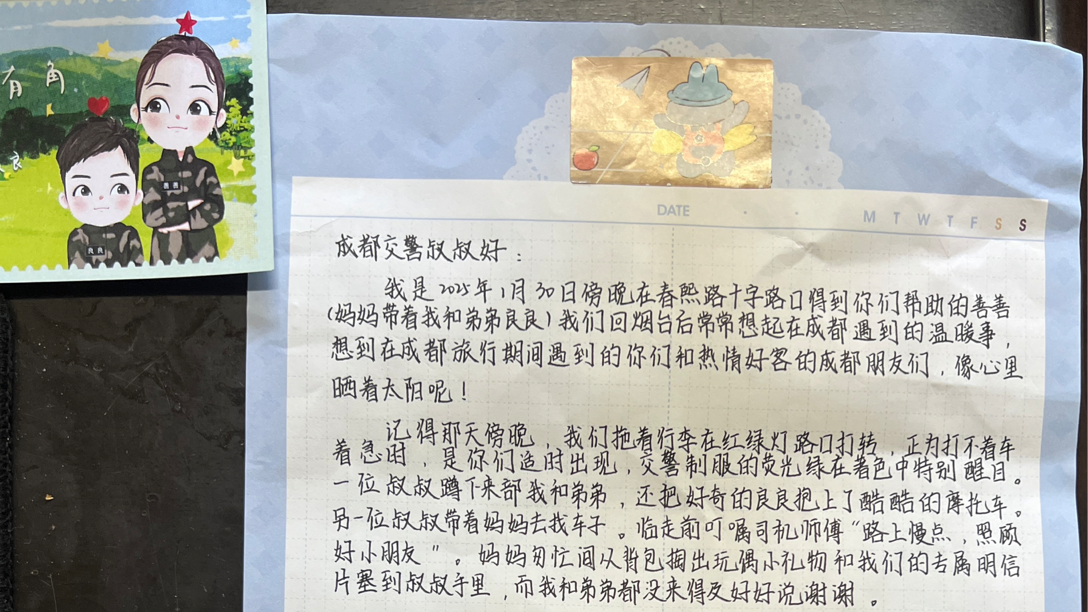 有角
DATE
M T W T F S S
成都交警叔叔好：
我是2025年1月30日傍晚在春熙路十字路口得到你们帮助的善善
(妈妈带着我和弟弟良良)我们回烟台后常常想起在成都遇到的温暖事，
想到在成都旅行期间遇到的你们和热情好客的成都朋友们，像心里
晒着太阳呢！
记得那天傍晚，我们拖着行李在红绿灯路口打转，正为打不着车
着急时，是你们适时出现，交警制服的荧光绿在着色中特别醒目。
一位叔叔蹲下来部我和弟弟，还把好奇的良良抱上了酷酷的摩托车。
另一位叔叔带着妈妈去找车子。临走前叮嘱司机师傅“路上慢点，照顾
好小朋友”。妈妈匆忙间从背包掏出玩偶小礼物和我们的专属明信
片塞到叔叔手里，而我和弟弟都没来得及好好说谢谢。